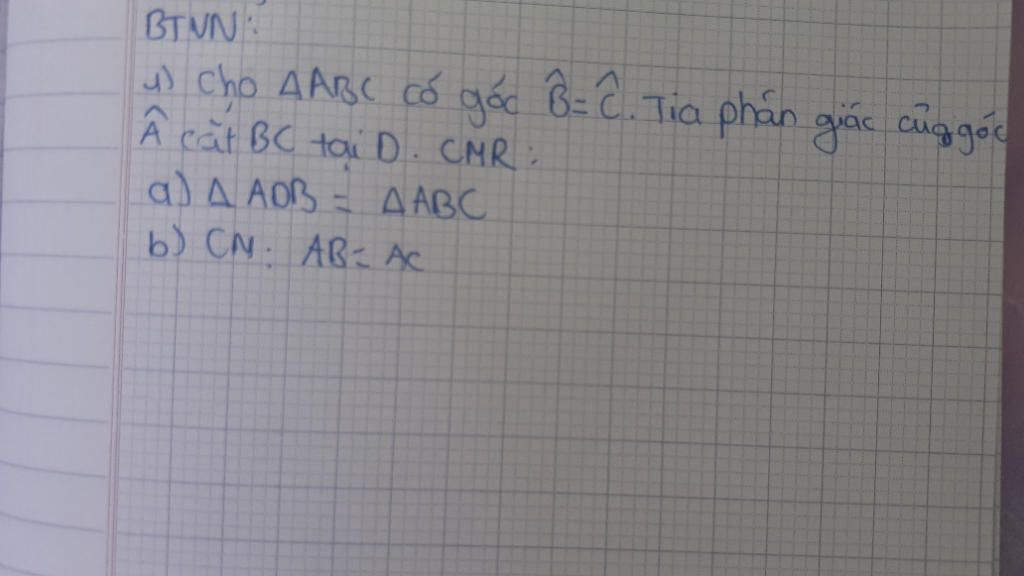 BTVN:
1) Cho ΔABC có góc B̂ = Ĉ. Tia phân giác của góc
Â cắt BC tại D. CMR:
a) Δ ADB = ΔABC
b) CN: AB = AC